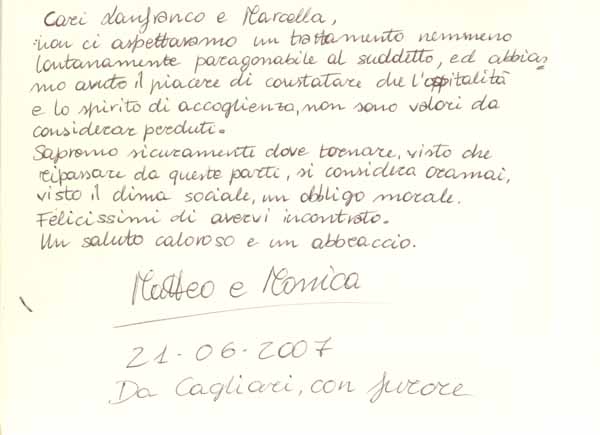 Cari Lanfranco e Marcella,
non ci aspettavamo un trattamento nemmeno
lontanamente paragonabile al suddetto, ed abbia=
mo avuto il piacere di constatare che l'ospitalità
e lo spirito di accoglienza, non sono valori da
considerar perduti.
Sapremo sicuramente dove tornare, visto che
ripassare da queste parti, si considera oramai,
visto il clima sociale, un obbligo morale.
Felicissimi di avervi incontrato.
Un saluto caloroso e un abbraccio.
Matteo e Monica
21-06-2007
Da Cagliari, con furore